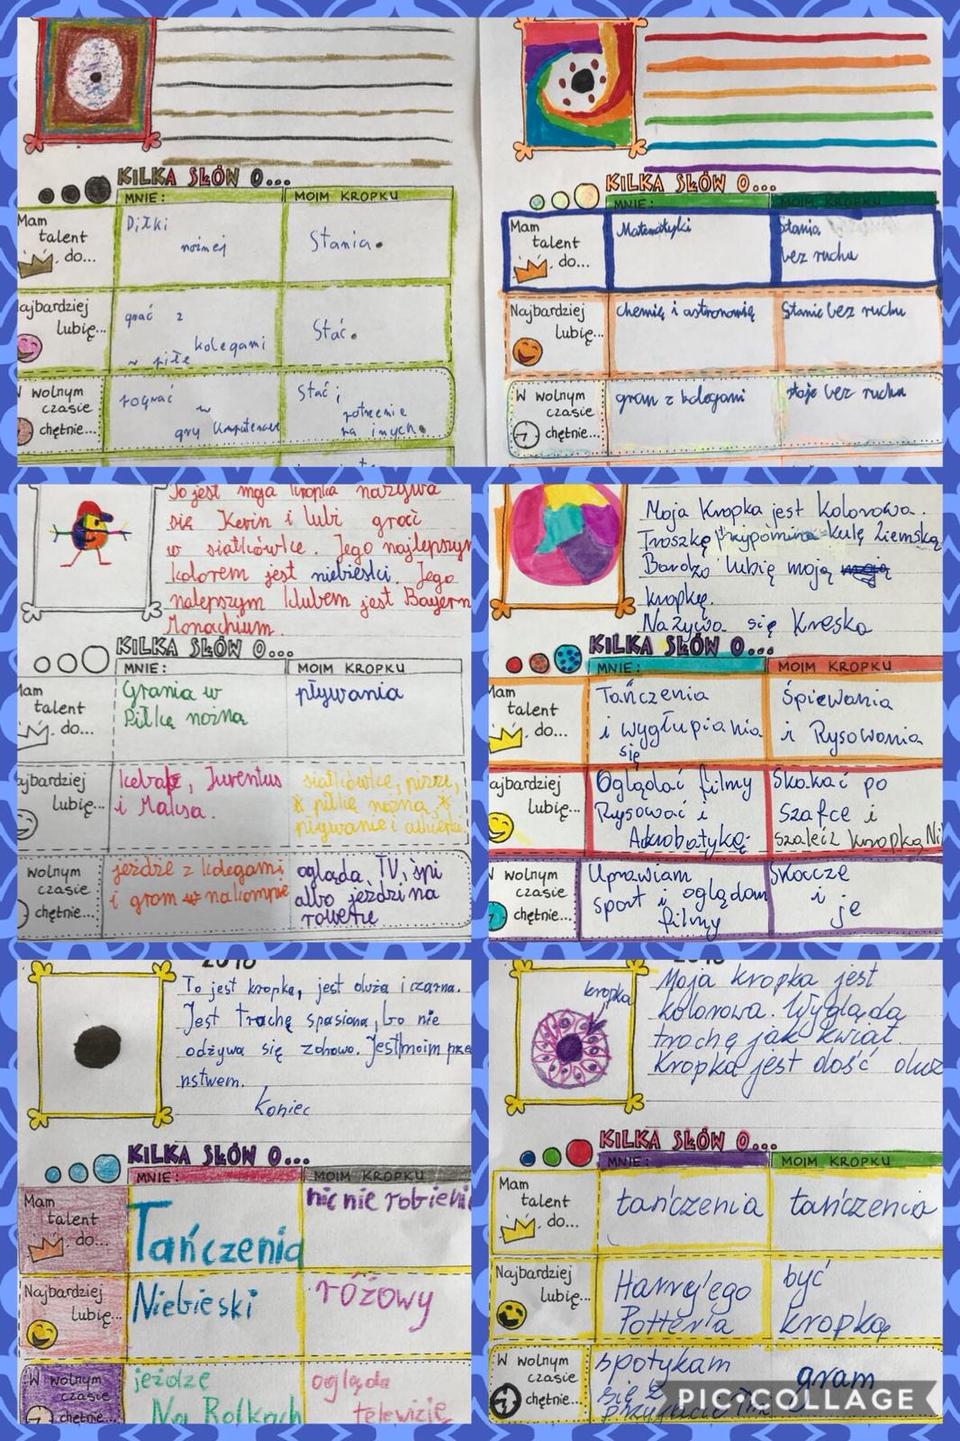 KILKA SŁÓW O...
MNIE:
MOIM KROPKU
Mam
talent
do...
Piłki
nożnej
Stania.
ajbardziej
lubię...
grać z
kolegami
w piłę
Stać.
W wolnym
czasie
chętnie...
w
gry
Stać i
na innych.
KILKA SŁÓW O...
MNIE:
MOIM KROPKU
Mam
talent
do...
Matematyki
Stania
bez ruchu
Najbardziej
lubię...
chemię i astronomię
Stanie bez ruchu
W wolnym
czasie
chętnie...
gram z kolegami
stoje bez ruchu
To jest moja kropka nazywa
się Kevin i lubi grać
w siatkówke. Jego najlepszym
kolorem jest niebieski. Jego
nalepszym klubem jest Bayern
Monachium.
KILKA SŁÓW O...
MNIE:
MOIM KROPKU
Mam
talent
do...
Grania w
Piłkę nożna
pływania
ajbardziej
lubię...
kebab, Juventus
i Malusa.
siatkówkę, pizze,
piłkę nożną,
pływanie i
wolnym
czasie
chętnie...
jeżdże z kolegami
i gram na kompie
ogląda TV, śpi
albo jeździ na
rowerze
Moja Kropka jest kolorowa.
Troszkę przypomina kulę Ziemską
Bardzo lubię moją
kropkę.
Nazywa się Kreska
KILKA SŁÓW O...
MNIE:
MOIM KROPKU
Mam
talent
do...
Tańczenia
i wygłupiania
się
Śpiewania
i Rysowania
ajbardziej
lubię...
Oglądać filmy
Rysować i
Akrobatykę
Skakać po
szafce i
szaleć kropką Ni
W wolnym
czasie
chętnie...
Uprawiam
sport i oglądam
filmy
Skacze
i
je
2018
To jest kropka, jest duża i czarna.
Jest trochę spasiona, bo nie
odżywa się zdrowo. Jest moim prze
nstwem.
Koniec
KILKA SŁÓW O...
MNIE:
MOIM KROPKU
Mam
talent
do...
Tańczenia
nic nie robieni
Najbardziej
lubię...
Niebieski
różowy
W wolnym
czasie
chętnie...
jeżdże
Na Rolkach
ogląda
telewizję
2018
kropka
Moja kropka jest
kolorowa. Wygląda
trochę jak kwiat.
Kropka jest dość duż
KILKA SŁÓW O...
MNIE:
MOIM KROPKU
Mam
talent
do...
tańczenia
tańczenia
Najbardziej
lubię...
Harry'ego
Pottera
być
kropką
W wolnym
czasie
chętnie...
spotykam
się z
gram
PIC COLLAGE